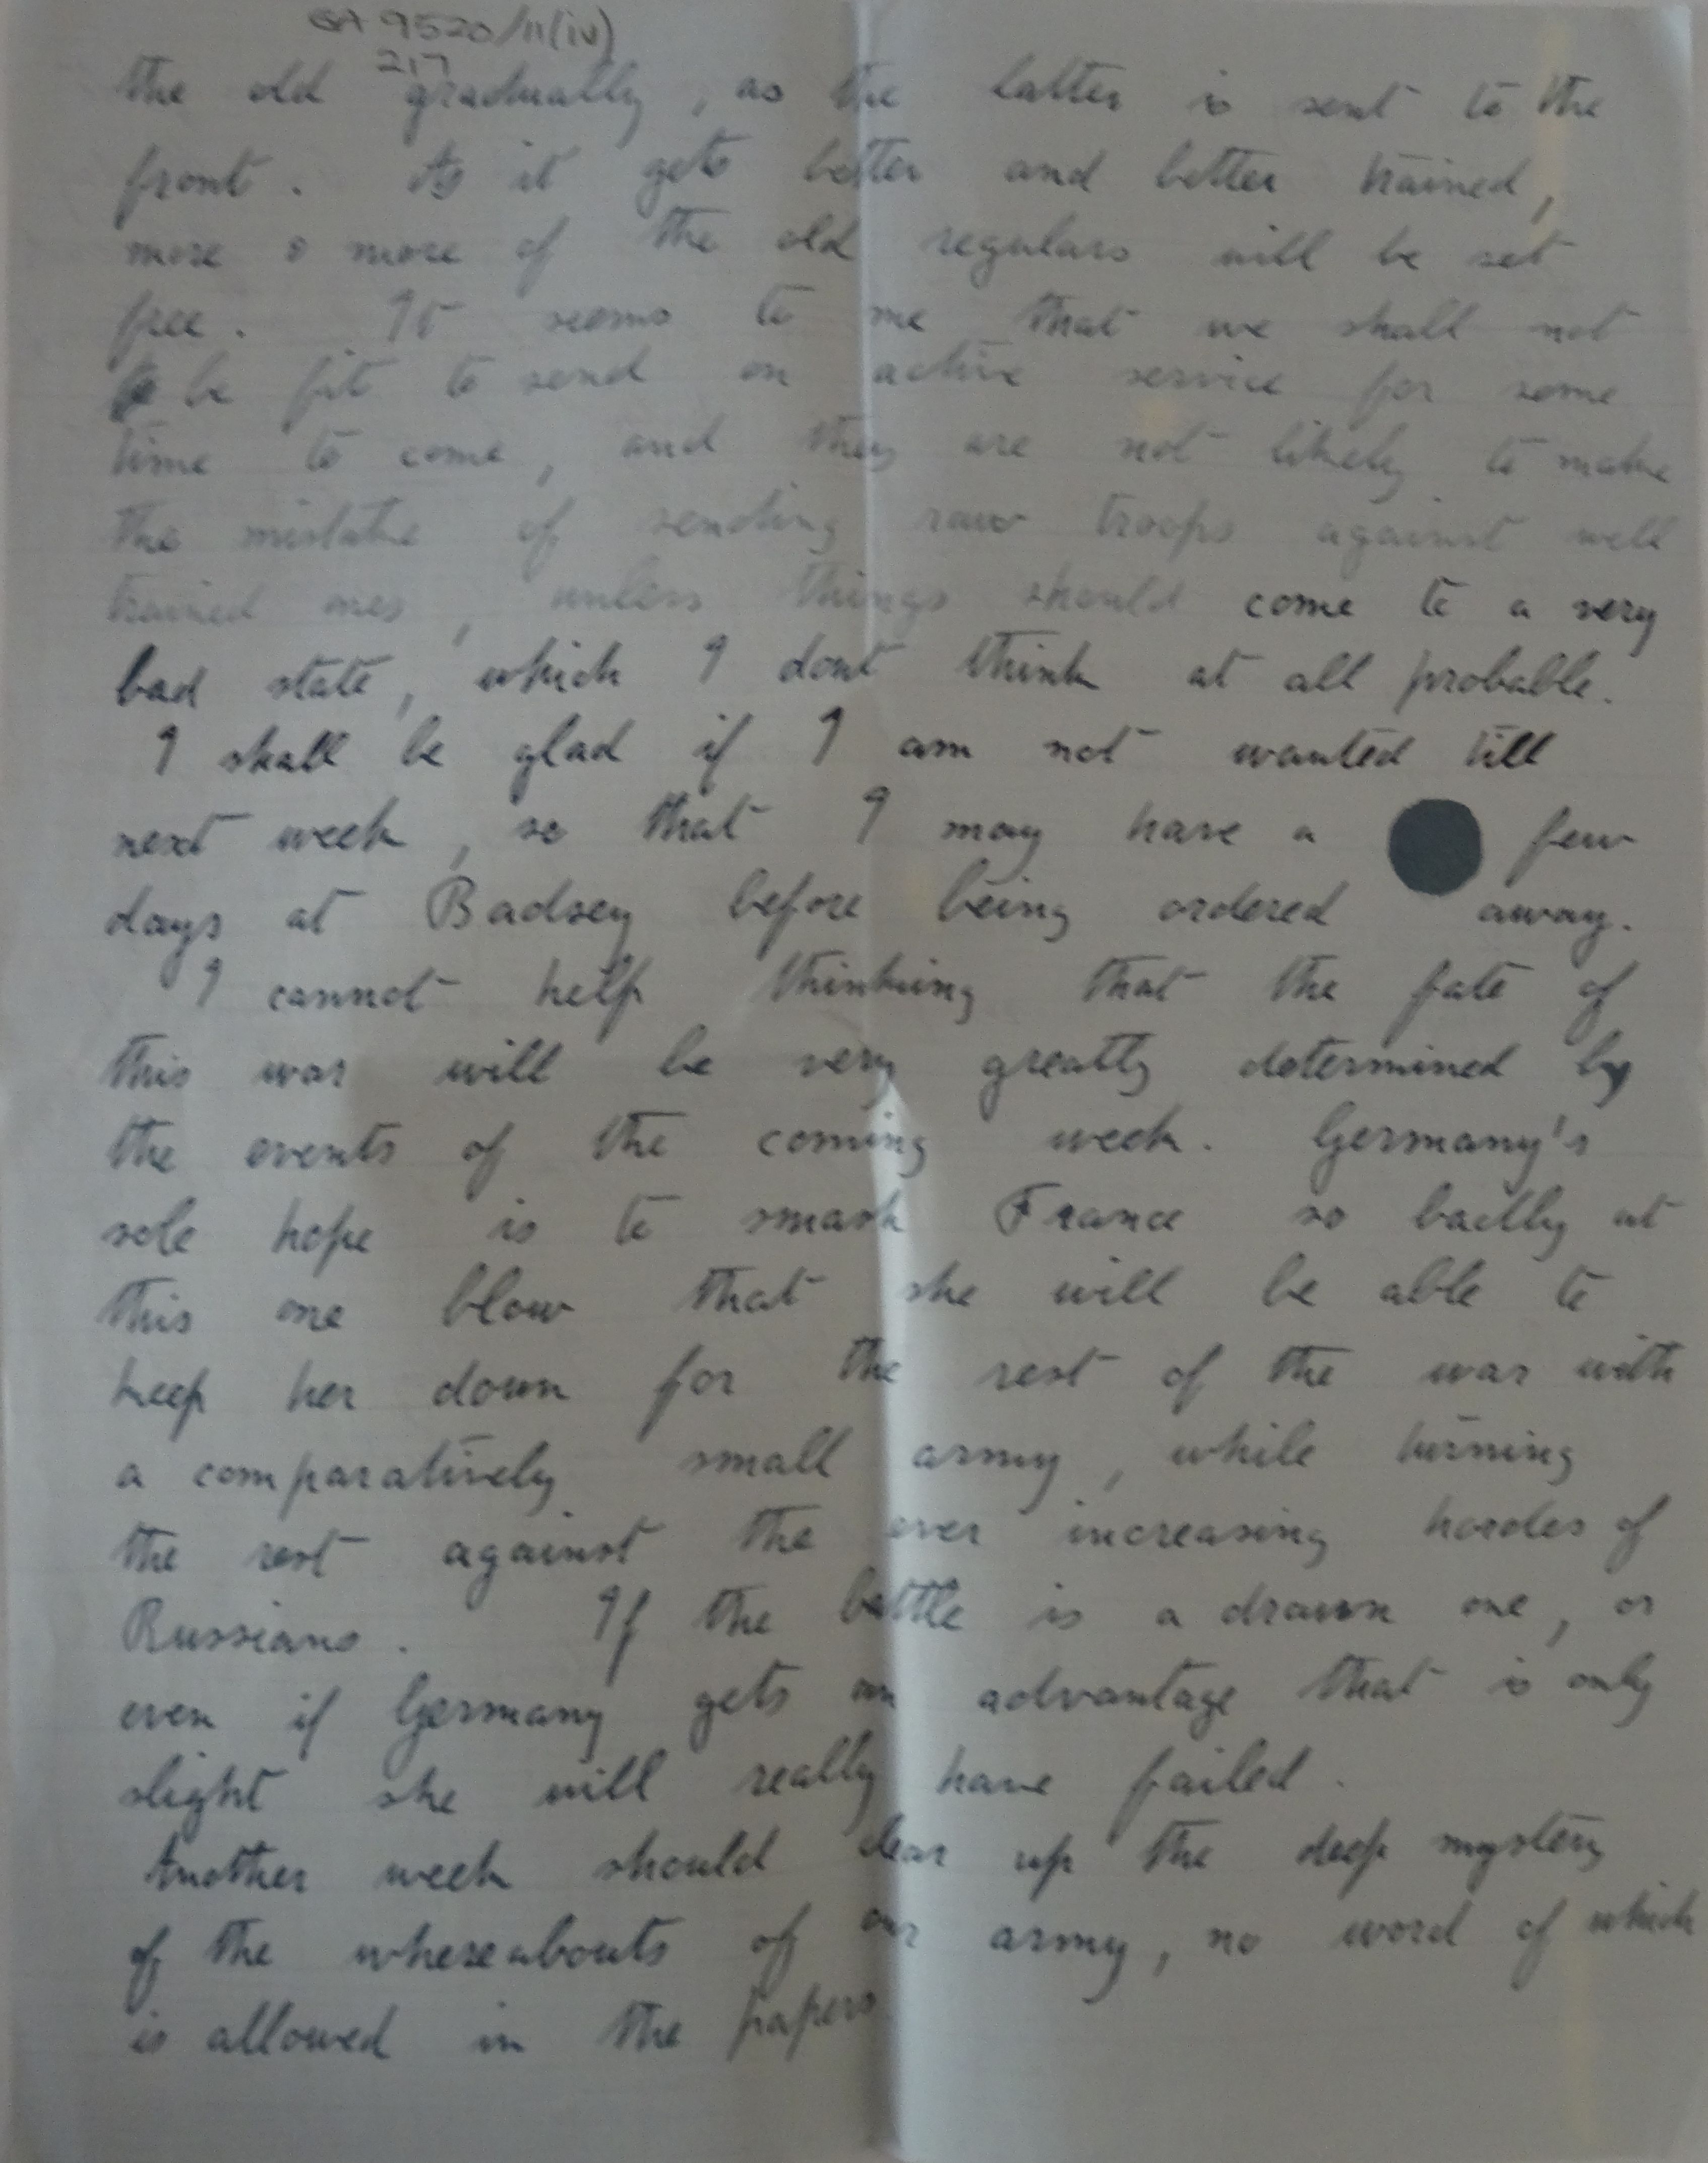 BA 9520/11(iv)
217
the old gradually, as the latter is sent to the
front. As it gets better and better trained,
more & more of the old regulars will be set
free. It seems to me that we shall not
be fit to send on active service for some
time to come, and they are not likely to make
the mistake of sending raw troops against well
trained ones, unless things should come to a very
bad state, which I dont think at all probable.
I shall be glad if I am not wanted till
next week, so that I may have a few
days at Badsey before being ordered away.
I cannot help thinking that the fate of
this war will be very greatly determined by
the events of the coming week. Germany's
sole hope is to smash France so badly at
this one blow that she will be able to
keep her down for the rest of the war with
a comparatively small army, while turning
the rest against the ever increasing hordes of
Russians. If the battle is a drawn one, or
even if Germany gets an advantage that is only
slight she will really have failed.
Another week should clear up the deep mystery
of the whereabouts of our army, no word of which
is allowed in the papers.